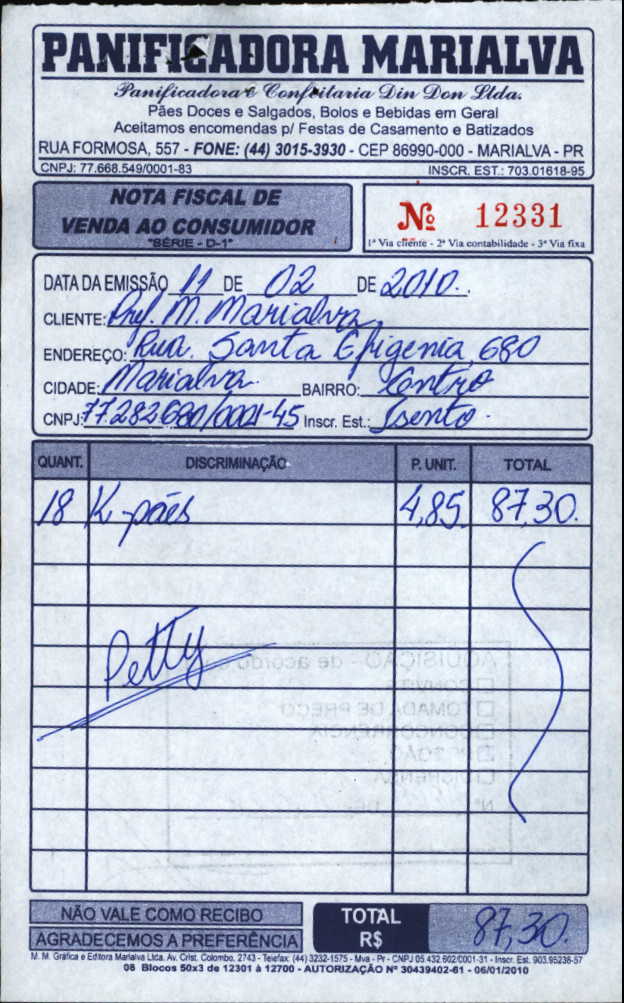 PANIFICADORA MARIALVA
Panificadora e Confeitaria Din Don Ltda.
Pães Doces e Salgados, Bolos e Bebidas em Geral
Aceitamos encomendas p/ Festas de Casamento e Batizados
RUA FORMOSA, 557 - FONE: (44) 3015-3930 - CEP 86990-000 - MARIALVA - PR
CNPJ: 77.668.549/0001-83 INSCR. EST.: 703.01618-95
NOTA FISCAL DE
VENDA AO CONSUMIDOR
"SÉRIE - D-1"
Nº 12331
1ª Via cliente - 2ª Via contabilidade - 3ª Via fixa
DATA DA EMISSÃO 11 DE 02 DE 2010.
CLIENTE: Pref. M. Marialva
ENDEREÇO: Rua. Santa Efigenia, 680
CIDADE: Marialva. BAIRRO: Centro
CNPJ: 77.282.680/0001-45 Inscr. Est.: Isento.
QUANT. DISCRIMINAÇÃO P. UNIT. TOTAL
18 K-pães 4,85 87,30.
Petty
AQUISIÇÃO - de acordo
CONVITE
TOMADA DE PREÇO
CONCORRÊNCIA
Nº DE
NÃO VALE COMO RECIBO
AGRADECEMOS A PREFERÊNCIA
TOTAL
R$ 87,30.
M. M. Gráfica e Editora Marialva Ltda. Av. Crist. Colombo, 2743 - Telefax: (44) 3232-1575 - Mva - Pr - CNPJ 05.432.602/0001-31 - Inscr. Est. 903.95236-57
08 Blocos 50x3 de 12301 à 12700 - AUTORIZAÇÃO Nº 30439402-61 - 06/01/2010